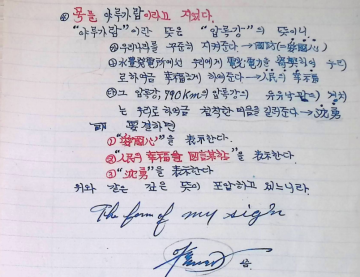 ② 목를 야루가람이라고 지었다.
"야루가람"이란 뜻은 "압록강"의 뜻이니
① 우리나라를 꾸준히 지켜준다 → 國防(=愛國心)
② 水豊發電所에서 우리에게 電光電力을 우리
로하여금 幸福하게 하여준다 → 人民의 幸福
③ 그 압록강, 790Km의 압록강의 유유낙락의
는 우리로 하여금 침착한 마음을 길러준다 → 沈勇
要結하면
① "愛國心"을 表示한다.
② "人民의 幸福을 " 을 表示한다.
③ "沈勇"을 表示한다
위와 같은 깊은 뜻이 포함하고 있느니라.
The form of my sign